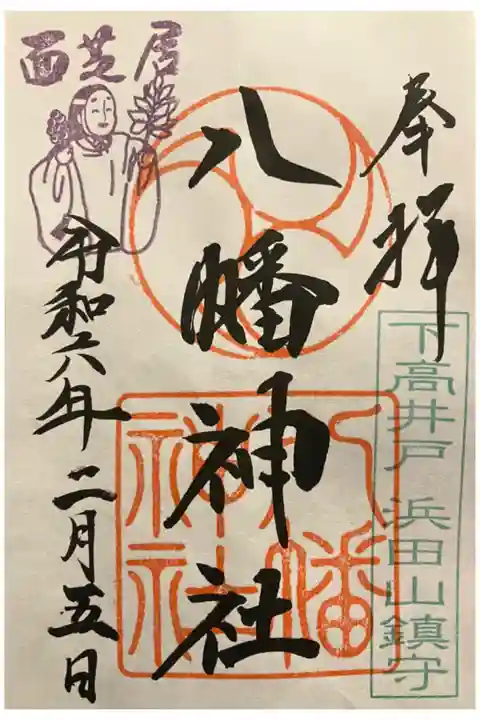 奉拝
下高井戸 浜田山鎮守
八幡神社
八幡
神社
面芝居
令和六年二月五日